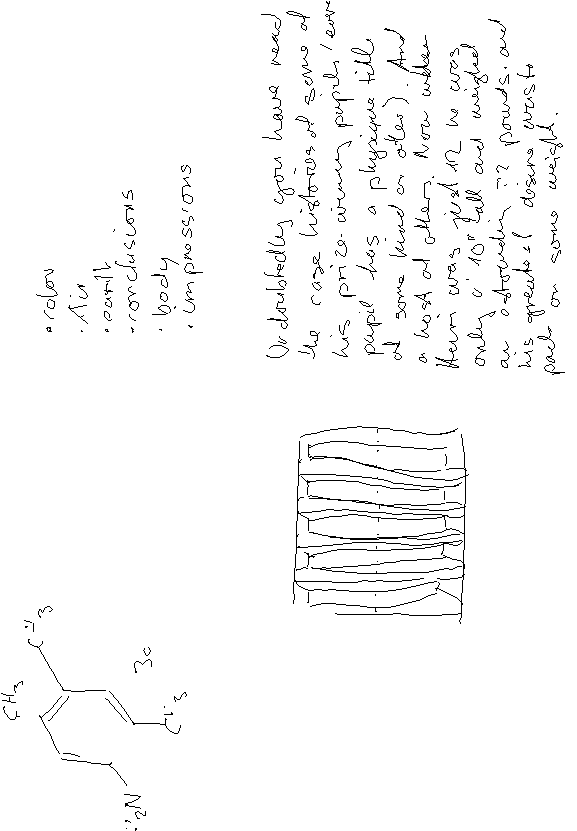 • color
• Air
• earth
• conclusions
• body
• impressions
Undoubtedly you have read
the case histories of some of
his prize-winning pupils, every
pupil has a physique title
of some kind or other). And
a host of others. Now when
Herm was just 12 he was
only 4' 10" tall and weighed
an astounding 72 pounds. and
his greatest desire was to
pack on some weight.
CH3
CH3
30
CH3
H2N